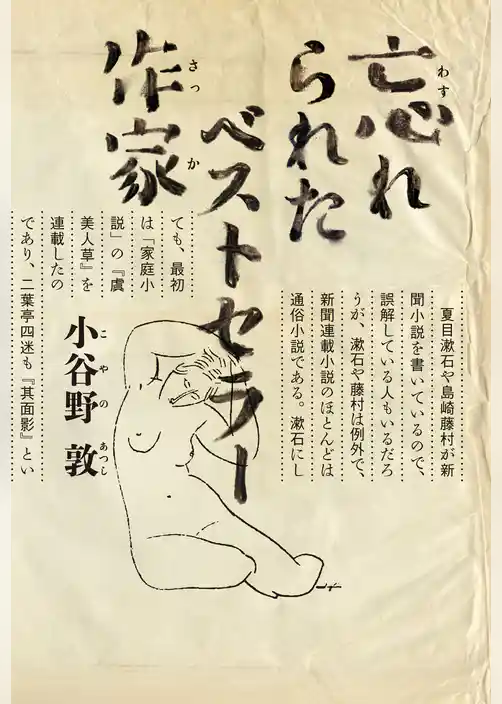 忘れ
られた
ベストセラー
作家
わす
さっ
か
夏目漱石や島崎藤村が新
聞小説を書いているので、
誤解している人もいるだろ
うが、漱石や藤村は例外で、
新聞連載小説のほとんどは
通俗小説である。漱石にし
ても、最初
は「家庭小
説」の『虞
美人草』を
連載したの
であり、二葉亭四迷も『其面影』とい
小谷野 敦
こやの あつし